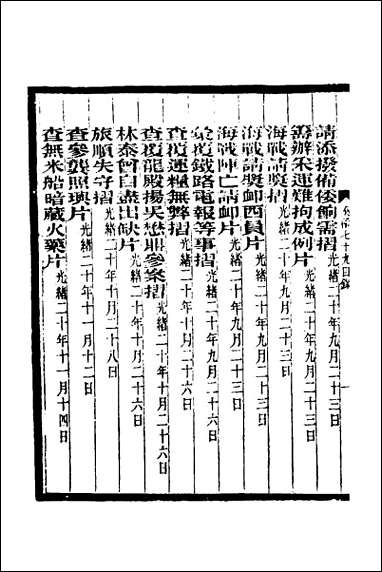 請添撥備倭餉需摺光緒二十年九月二十三日
籌辦采運難拘成例片光緒二十年九月二十三日
海戰請獎摺光緒二十年九月二十三日
海戰請獎卹西員片光緒二十年九月二十三日
海戰陣亡請卹片光緒二十年九月二十三日
彙覆鐵路電報等事摺光緒二十年九月二十六日
查覆運糧無弊摺光緒二十年十月二十六日
查覆龍殿揚吳懋鼎參案摺光緒二十年十月二十六日
林泰曾自盡出缺片光緒二十年十月二十六日
旅順失守摺光緒二十年十月二十八日
查參龔照璵片光緒二十年十一月十二日
查無米船暗藏火藥片光緒二十年十一月十四日